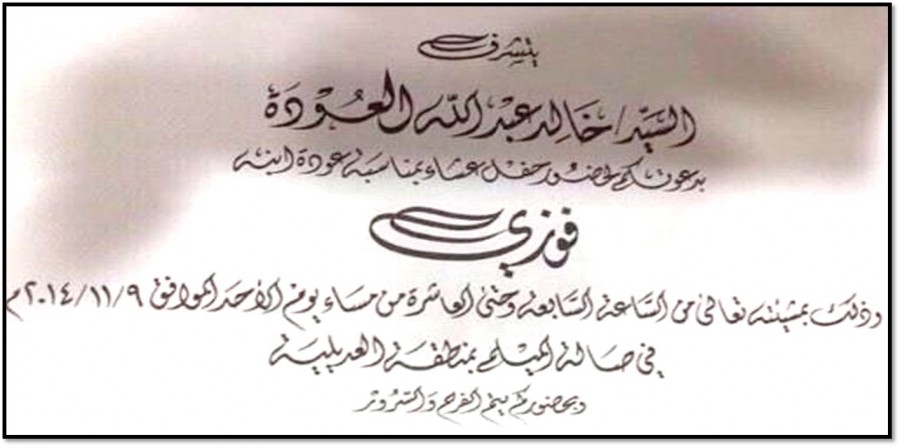 يتشرف
السيد/ خالد عبد الله العودة
بدعوتكم لحضور حفل عشاء بمناسبة عودة ابنه
فوزي
وذلك بمشيئته تعالى من الساعة السابعة وحتى العاشرة من مساء يوم الأحد الموافق ٢٠١٤/١١/٩م
في صالة الميلم بمنطقة العديلية
وبحضوركم يتم الفرح والسرور